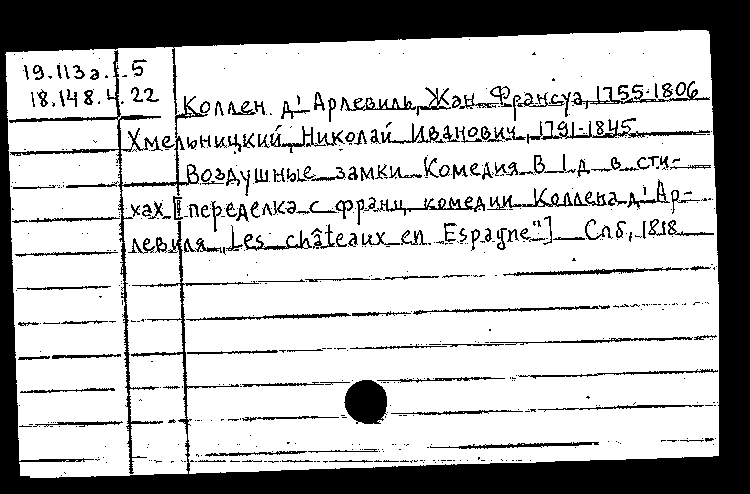 19.113а.1.5
18.148.4.22
Коллен д'Арлевиль, Жан Франсуа, 1755-1806
Хмельницкий, Николай Иванович, 1791-1845.
Воздушные замки. Комедия в 1 д. в сти-
хах [переделка с франц. комедии Коллена д'Ар-
левиля „Les châteaux en Espagne"]. Спб, 1818